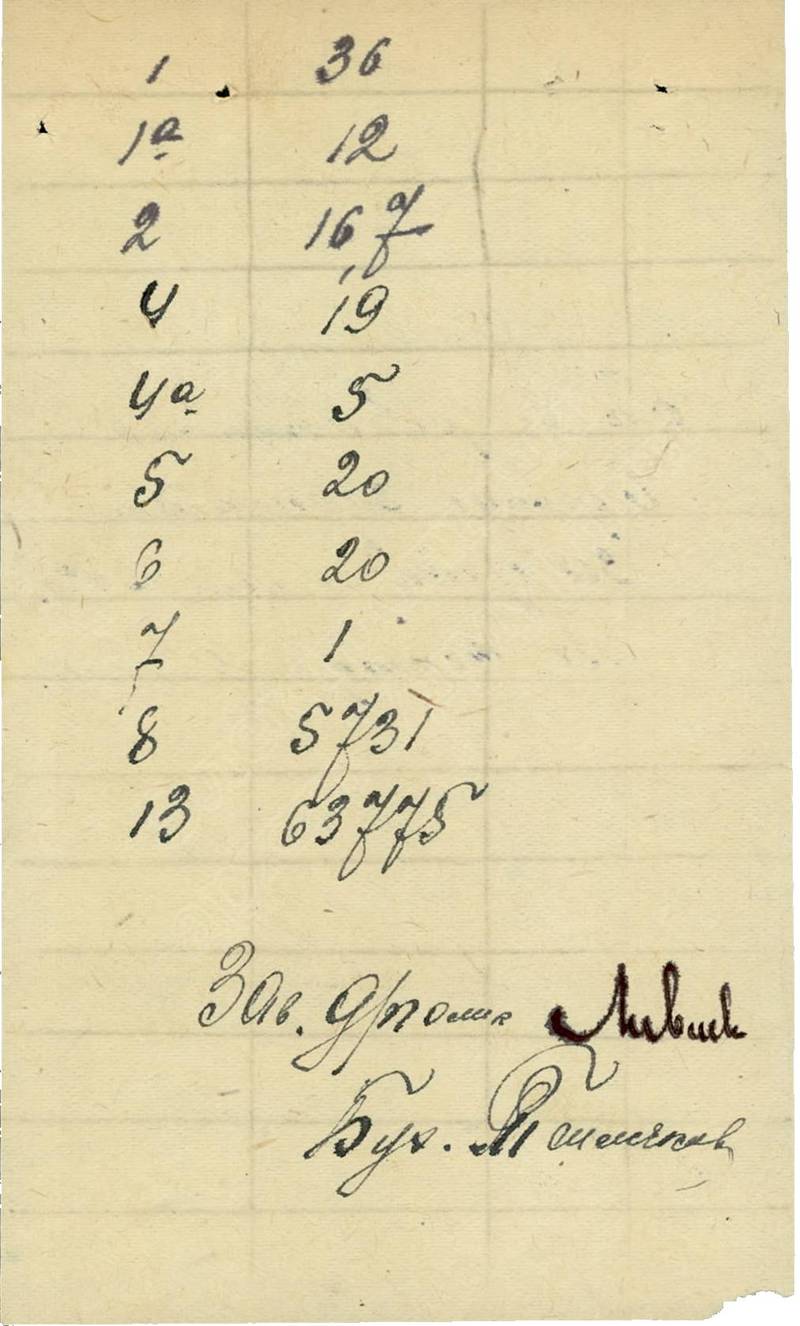 1 36
1а 12
2 167
4 19
4а 5
5 20
6 20
7 1
8 5731
13 63775
Зав.
Бух.